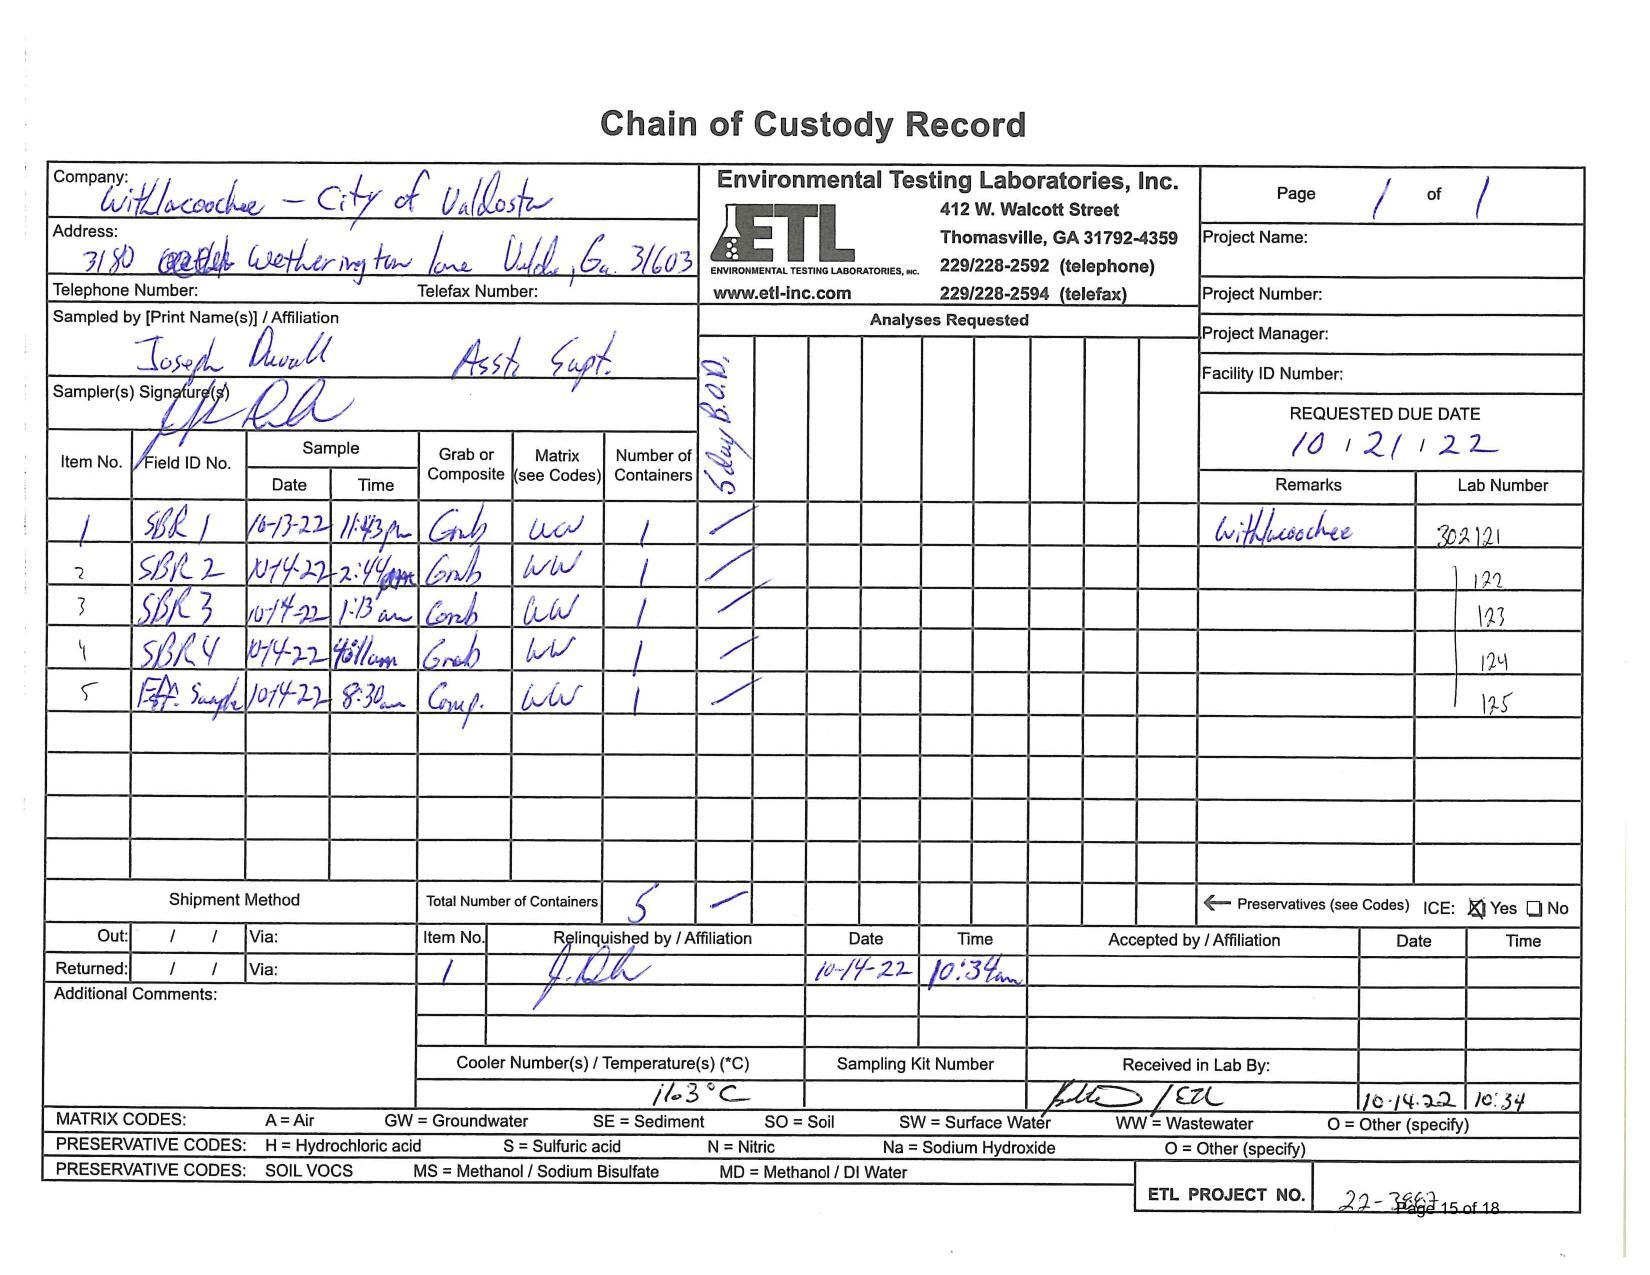 Chain of Custody Record
Company: Withlacoochee - City of Valdosta
Address: 3180 Wetherington lane Ga. 31603
Telephone Number: Telefax Number:
Sampled by [Print Name(s)] / Affiliation
Joseph Duvall Asst. Supt.
Sampler(s) Signature(s)
Environmental Testing Laboratories, Inc.
ETL
ENVIRONMENTAL TESTING LABORATORIES, INC.
www.etl-inc.com
412 W. Walcott Street
Thomasville, GA 31792-4359
229/228-2592 (telephone)
229/228-2594 (telefax)
Analyses Requested
5 day B.O.D.
Page 1 of 1
Project Name:
Project Number:
Project Manager:
Facility ID Number:
REQUESTED DUE DATE
10 / 21 / 22
Item No. Field ID No. Sample Date Time Grab or Composite Matrix (see Codes) Number of Containers Remarks Lab Number
1 SBR 1 10-13-22 11:43pm Grab WW 1 / Withlacoochee 302121
2 SBR 2 10-14-22 2:44am Grab WW 1 / 122
3 SBR 3 10-14-22 1:13 am Grab WW 1 / 123
4 SBR 4 10-14-22 Grab WW 1 / 124
5 Eff. Sample 10-14-22 8:30am Comp. WW 1 / 125
Shipment Method Total Number of Containers 5 – ← Preservatives (see Codes) ICE: ☒ Yes ☐ No
Out: / / Via: Item No. Relinquished by / Affiliation Date Time Accepted by / Affiliation Date Time
Returned: / / Via: 1 10-14-22 10:34am
Additional Comments:
Cooler Number(s) / Temperature(s) (*C) Sampling Kit Number Received in Lab By:
/ ETL 10-14-22 10:34
MATRIX CODES: A = Air GW = Groundwater SE = Sediment SO = Soil SW = Surface Water WW = Wastewater O = Other (specify)
PRESERVATIVE CODES: H = Hydrochloric acid S = Sulfuric acid N = Nitric Na = Sodium Hydroxide O = Other (specify)
PRESERVATIVE CODES: SOIL VOCS MS = Methanol / Sodium Bisulfate MD = Methanol / DI Water
ETL PROJECT NO.
Page 15 of 18